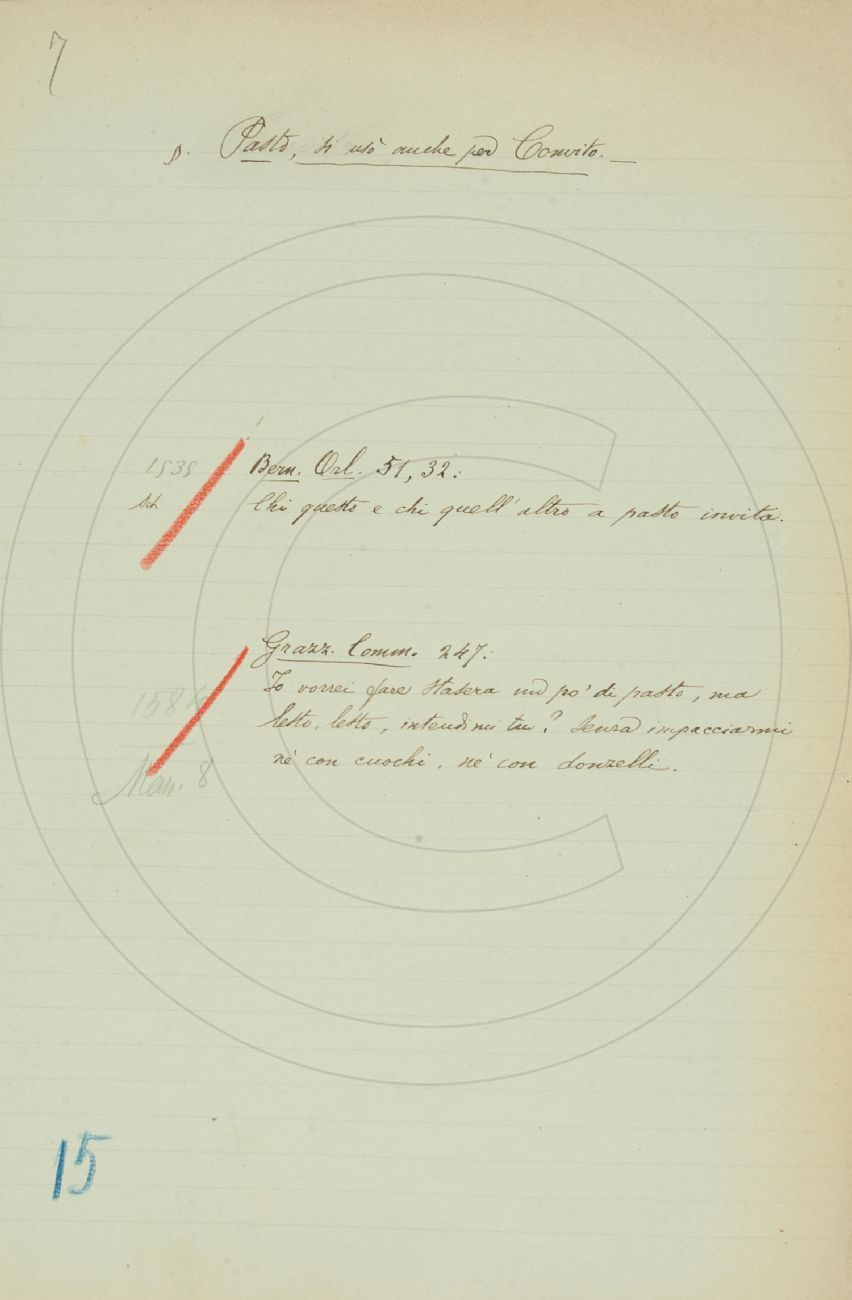 7
§. Pasto, si usò anche per Convito. —
1535
Bern. Orl. 51, 32:
Chi questo e chi quell'altro a pasto invita.
Grazz. Comm. 247:
Io vorrei fare stasera un po' di pasto, ma
lesto, lesto, intendimi tu? Senza impacciarmi
nè con cuochi, nè con donzelli.
Man. 8
15